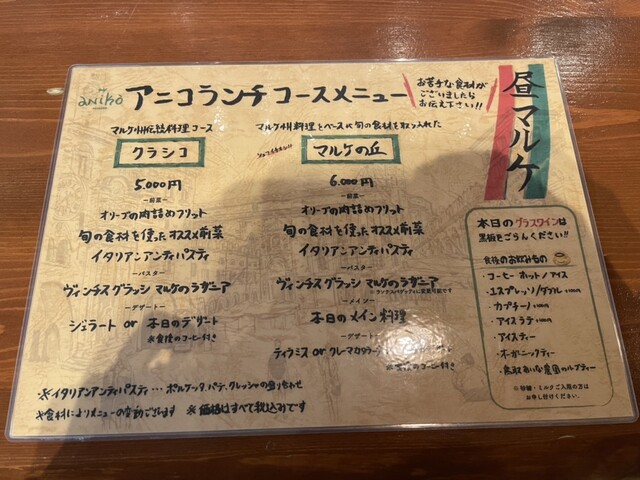 aniko
アニコランチコースメニュー
お苦手な食材が
ございましたら
お伝え下さい!!
昼マルケ
マルケ州伝統料理コース
クラシコ
5.000円
ー前菜ー
オリーブの肉詰めフリット
旬の食材を使ったオススメ前菜
イタリアンアンティパスティ
ーパスター
ヴィンチスグラッシ マルケのラザニア
ーデザートー
ジェラート or 本日のデザート
※食後のコーヒー付き
マルケ州料理をベースに旬の食材を取り入れた
マルケの丘
6.000円
ー前菜ー
オリーブの肉詰めフリット
旬の食材を使ったオススメ前菜
イタリアンアンティパスティ
ーパスター
ヴィンチスグラッシ マルケのラザニア
ーメインー
本日のメイン料理
ーデザートー
ティラミス or クレーマカタラーナ
※食後のコーヒー付き
本日のグラスワインは
黒板をごらんください!!
食後のお飲みもの
・コーヒー ホット/アイス
・エスプレッソ/ダブル+100円
・カプチーノ+100円
・アイスラテ+100円
・アイスティー
・オーガニックティー
※砂糖・ミルクご入用の方は
お申し付けください。
※イタリアンアンティパスティ…ポルケッタ、パテ、クレッシャの盛り合わせ
※食材によりメニューの変動ございます ※価格はすべて税込みです